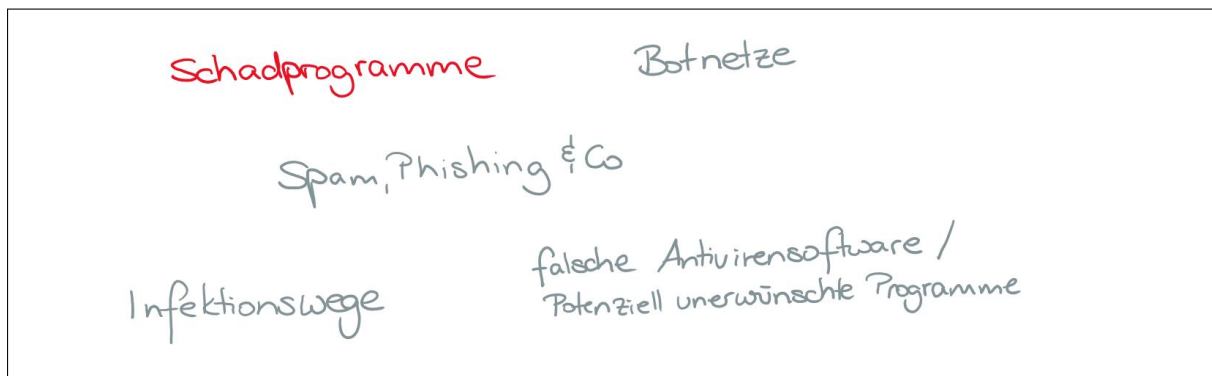 Schadprogramme
Botnetze
Spam, Phishing & Co
Infektionswege
falsche Antivirensoftware /
Potenziell unerwünschte Programme